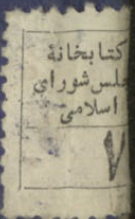 کتابخانهٔ
مجلس شورای
اسلامی
۷